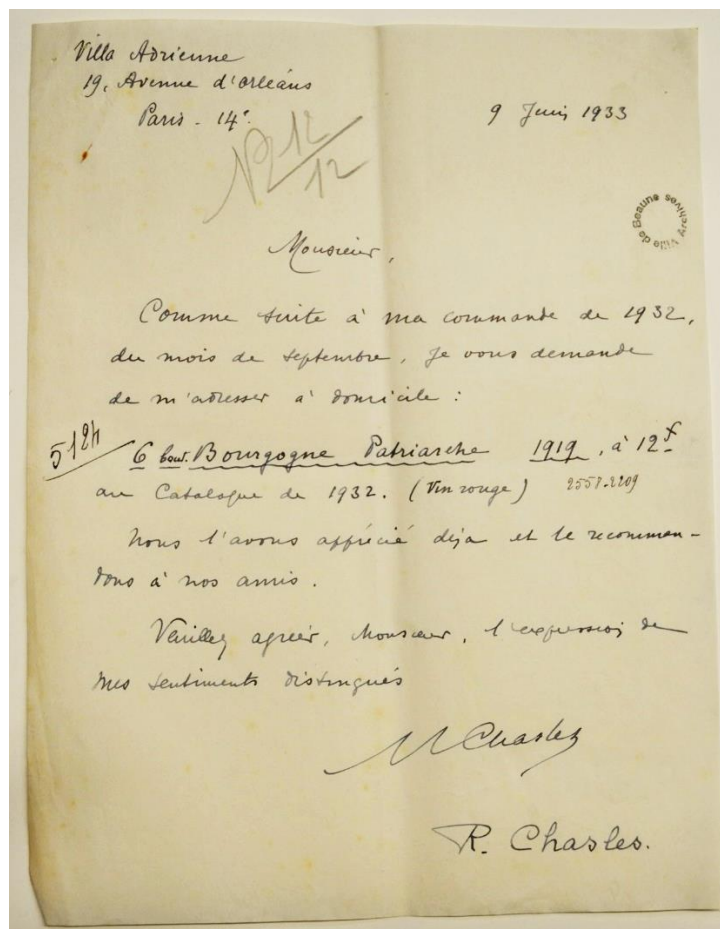 Villa Adrienne
19, Avenue d'Orléans
Paris - 14e.
9 Juin 1933
N 12/12
Archives Ville de Beaune
Monsieur,
Comme suite à ma commande de 1932,
du mois de septembre, je vous demande
de m'adresser à domicile :
5124
6 bout. Bourgogne Patriarche 1919, à 12f
au Catalogue de 1932. (Vin rouge) 2558.2209
Nous l'avons apprécié déja et le recomman-
dons à nos amis.
Veuillez agréer, Monsieur, l'expression de
mes sentiments distingués
R Chasles
R. Chasles.